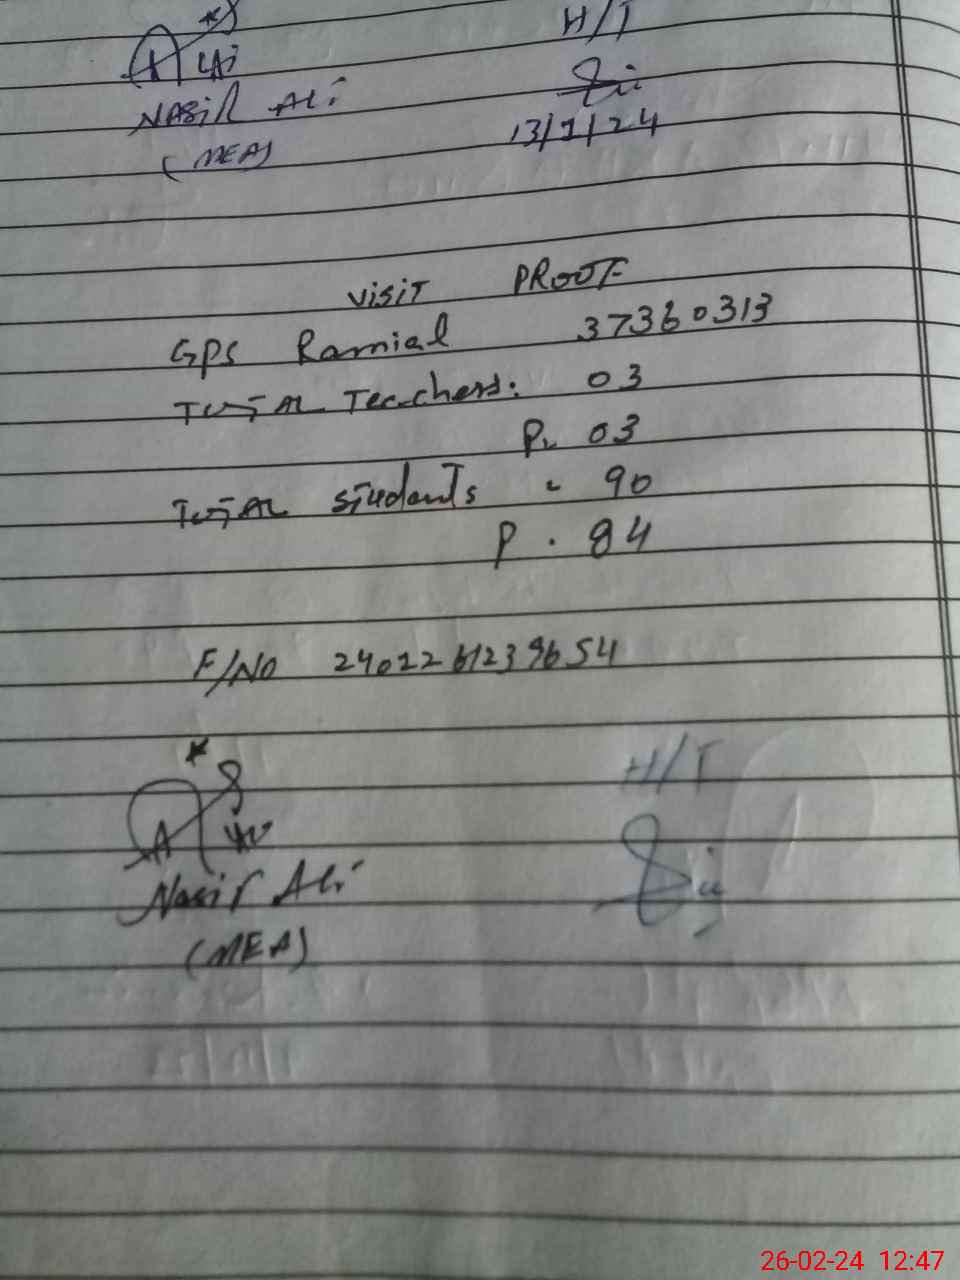 H/T
Nasir Ali
(MEA)
13/1/24
Visit Proof
GPS Ramial 37360313
Total Teachers: 03
P. 03
Total students 90
P. 84
F/No 2402261239654
H/T
Nasir Ali
(MEA)
26-02-24 12:47